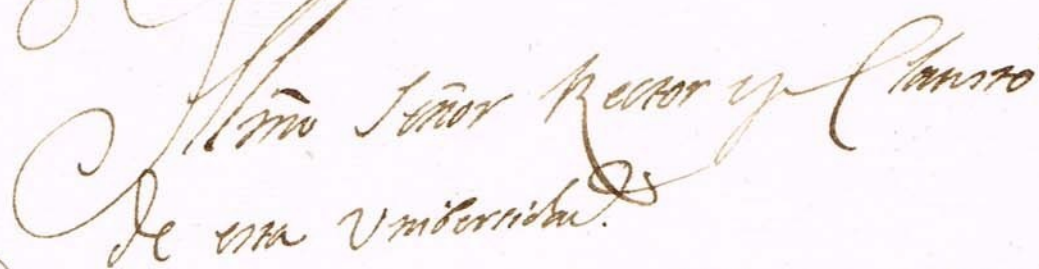 Illmo Señor Rector y Claustro
de esta Unibersidad.